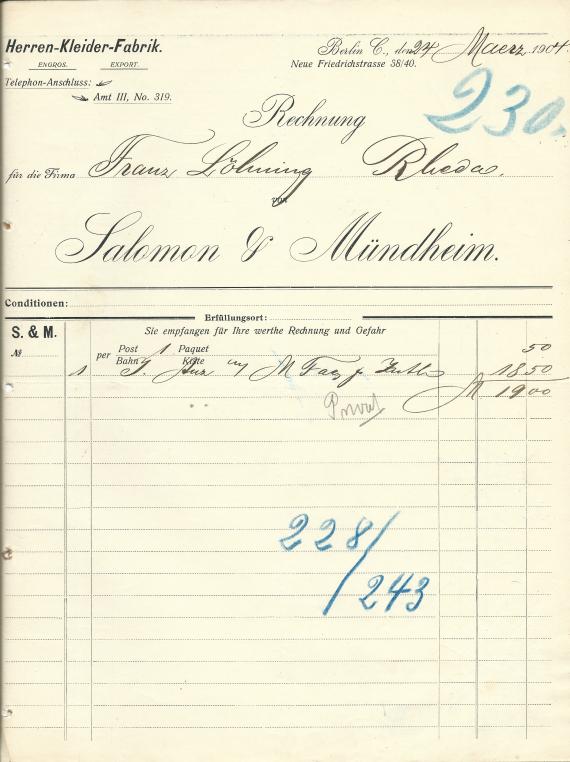 Herren-Kleider-Fabrik.
ENGROS. EXPORT.
Telephon-Anschluss:
Amt III, No. 319.
Berlin C., den 24 Maerz 1904.
Neue Friedrichstrasse 38/40.
230.
Rechnung
für die Firma Franz Löhning Rheda.
von
Salomon & Mündheim.
Conditionen:
Erfüllungsort:
S. & M.
Sie empfangen für Ihre werthe Rechnung und Gefahr
№
per Post 1 Paquet 50
Bahn Kiste
1 M 18.50
M 19.00
Privat
228/
243